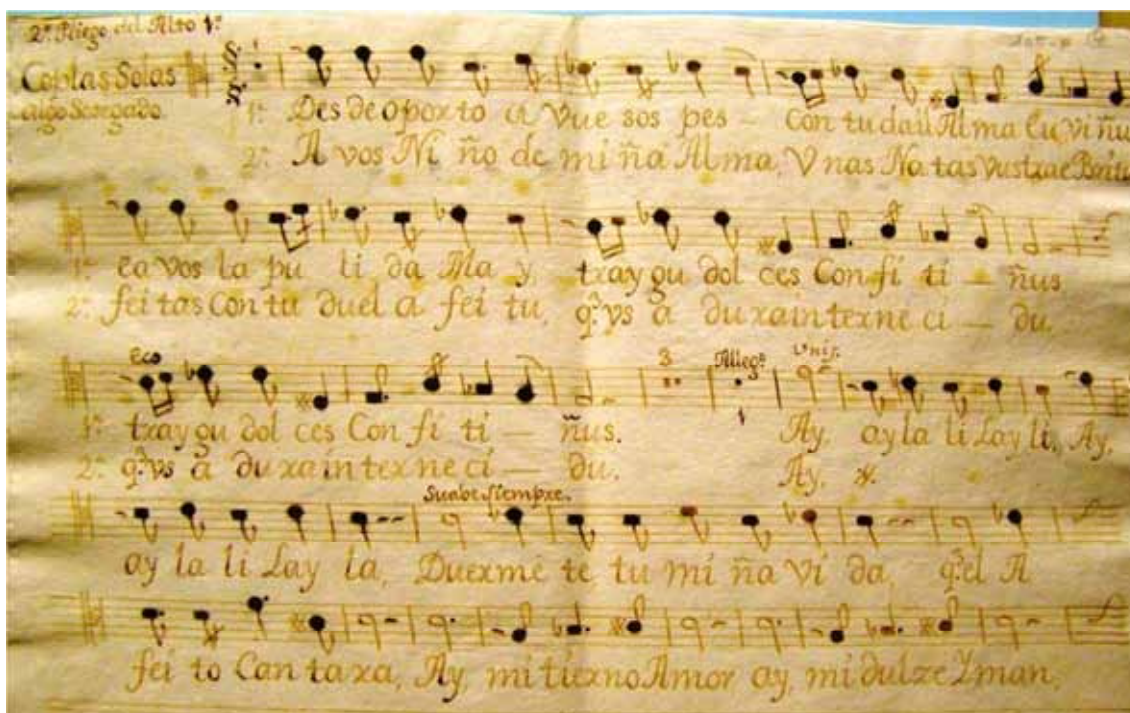 2º. Pliego del Alto 1º.
Coplas Solas
algo Sosegado.
1ª. Des de oporto a Vue sos pes – Con tu da il Al ma Cu, Vi ñu
2ª. A vos Ni ño de mi ña Alma, V nas No tas Vustrae Britu
1ª. ea vos la pu li da Ma y, tray gu dol ces Con fi ti – ñus
2ª. fei tas Con tu duel a fei tu, q.ͤ ys a du ra in ter ne ci – du.
eco
3 Alleg.º Unis.
1ª. tray gu dol ces Con fi ti – ñus. Ay, ay la li Lay li, Ay,
2ª. q.ͤ ys a du ra in ter ne ci – du. Ay, ※.
Suabe siempre.
ay la li Lay la, Duerme te tu mi ña Vi da, q.ͤ el A
fei to Can ta ra, Ay, mi tierno Amor ay, mi dulze Yman,